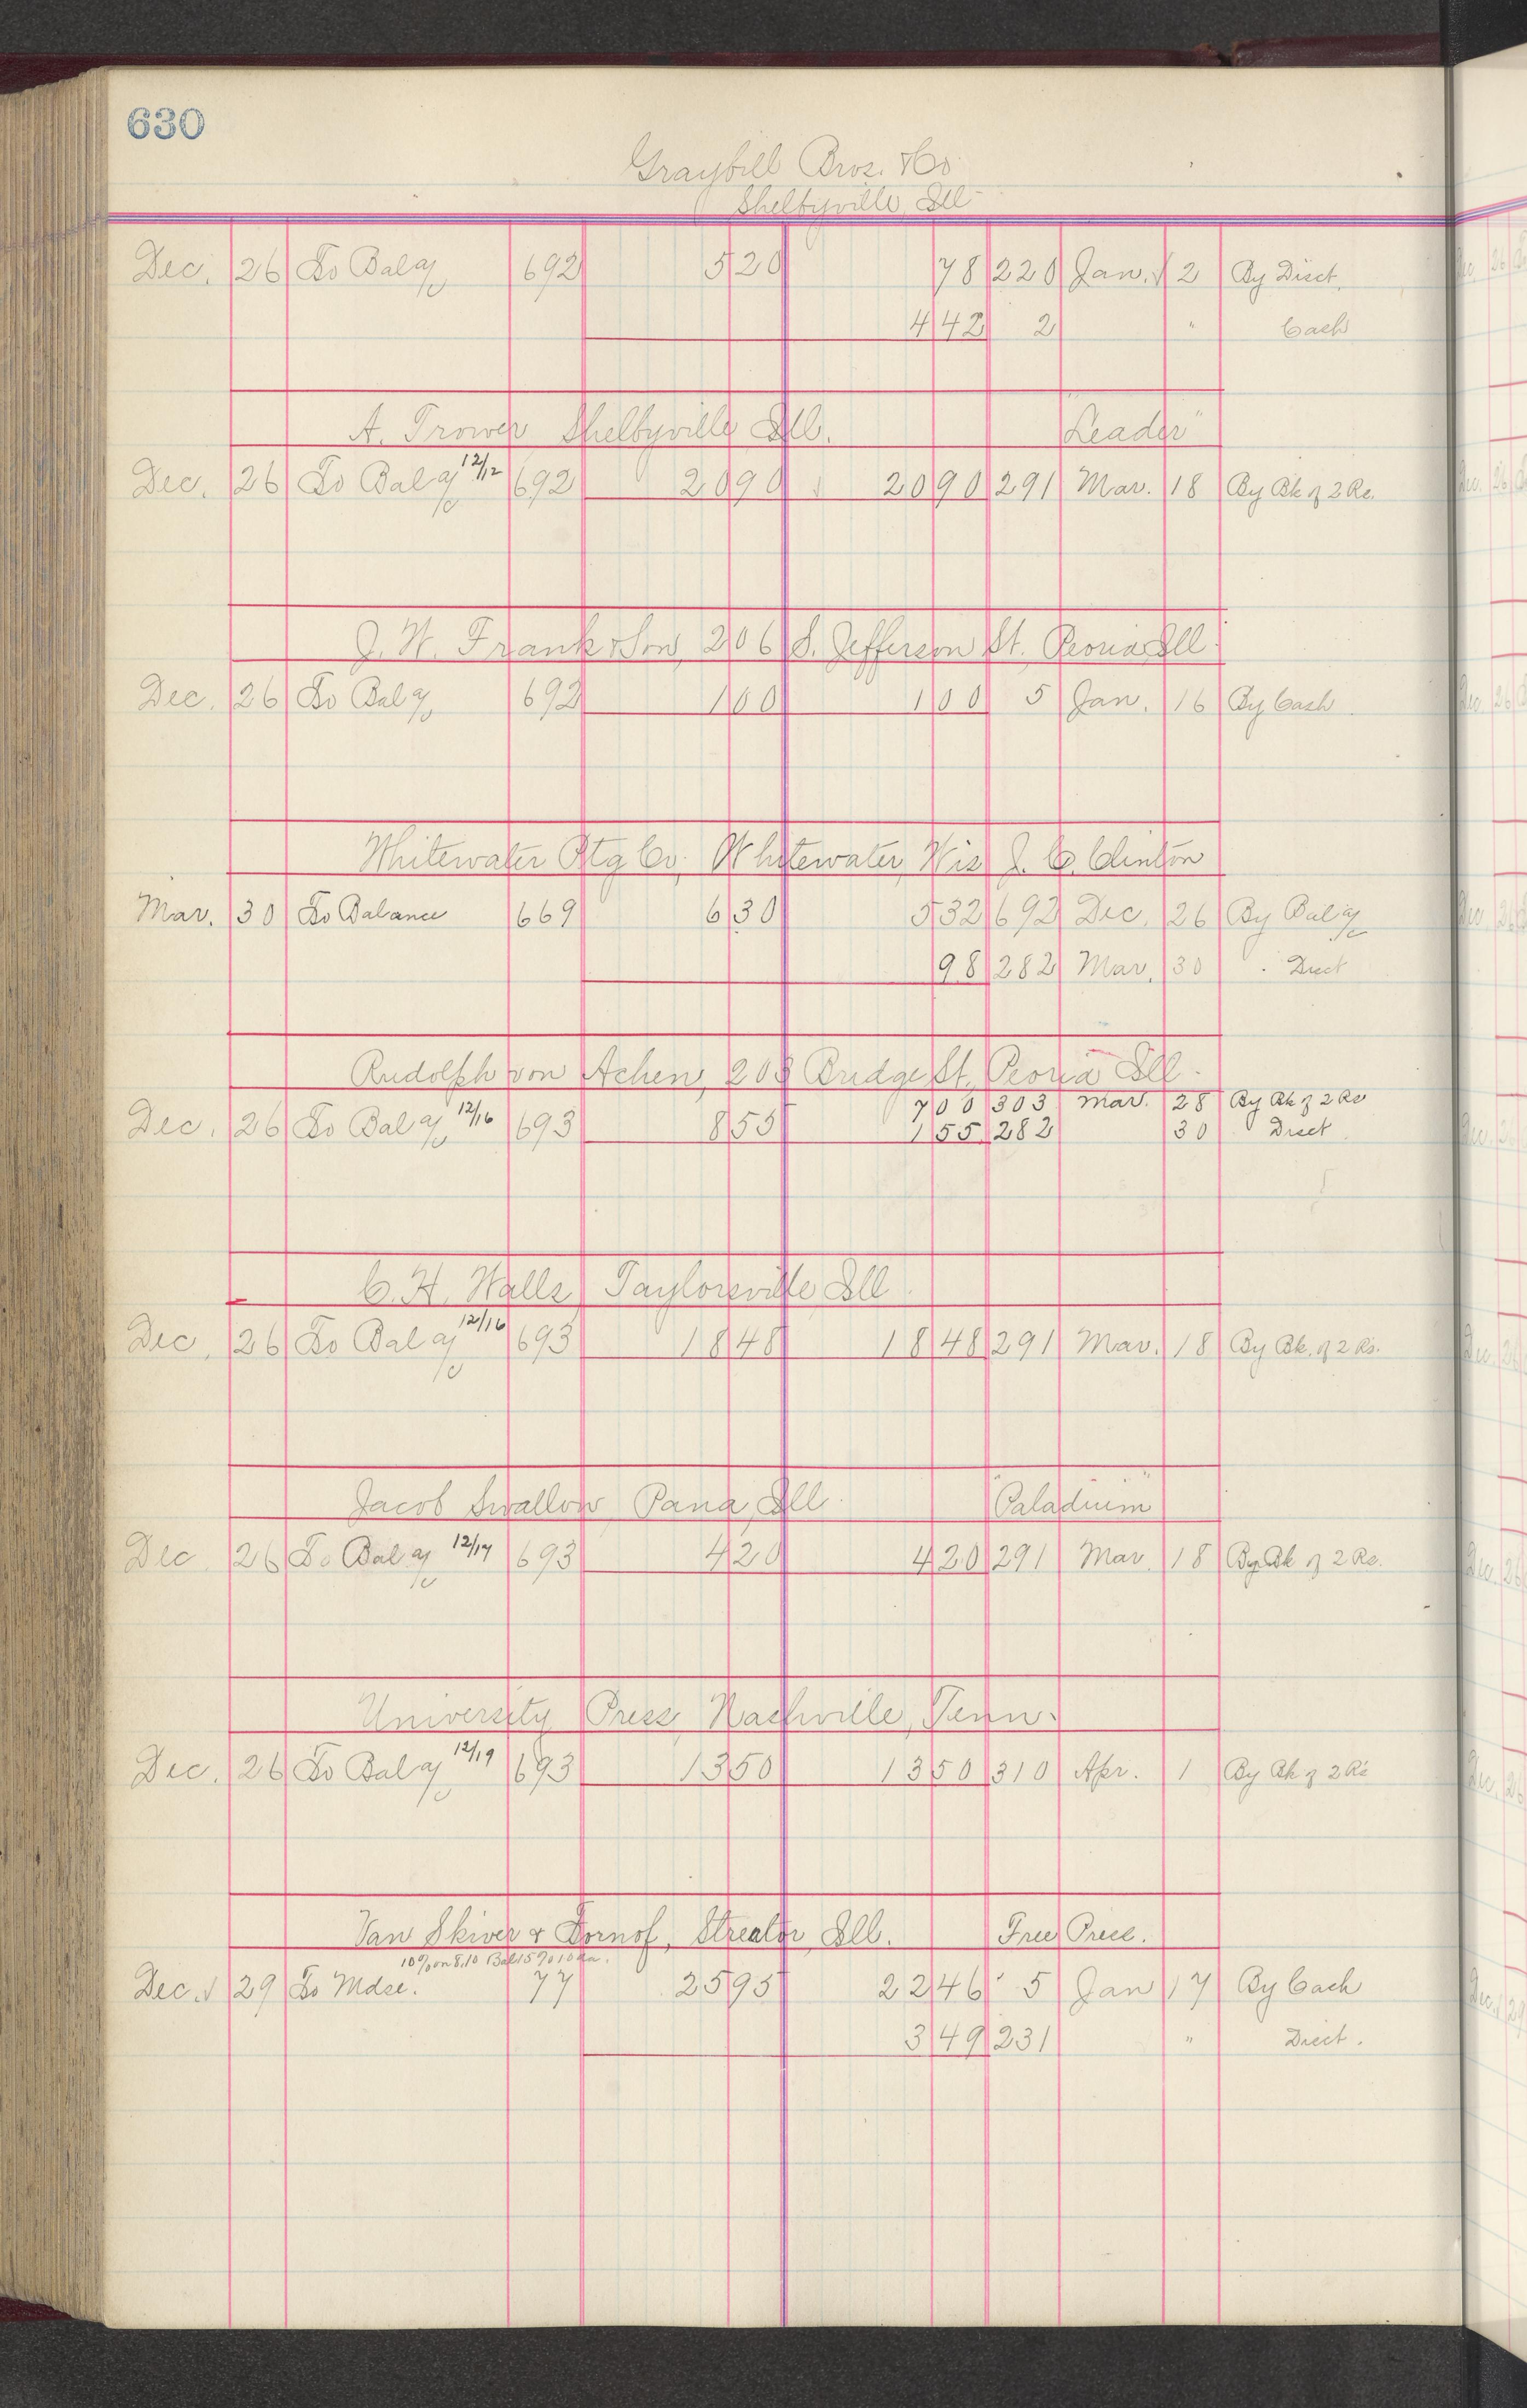 630
Graybill Bros. & Co
Shelbyville, Ill
Dec. 26 To Bal a/c 692 520 78 220 Jan. 2 By Disct.
442 2 " Cash
A. Trower Shelbyville Ill. "Leader"
Dec. 26 To Bal a/c 12/12 692 2090 2090 291 Mar. 18 By Bk of 2 Rs.
J. W. Frank & Son, 206 S. Jefferson St. Peoria Ill.
Dec. 26 To Bal a/c 692 100 100 5 Jan. 16 By Cash
Whitewater Ptg Co., Whitewater, Wis J. C. Clinton
Mar. 30 To Balance 669 630 532 692 Dec. 26 By Bal a/c
98 282 Mar. 30 " Disct
Rudolph von Achen, 203 Bridge St., Peoria Ill.
700 303 Mar. 28 By Bk of 2 Rs
Dec. 26 To Bal a/c 12/16 693 855 155 282 30 " Disct
C. H. Walls, Taylorsville Ill.
Dec. 26 To Bal a/c 12/16 693 1848 1848 291 Mar. 18 By Bk. of 2 Rs.
Jacob Swallow, Pana, Ill. "Paladium"
Dec 26 To Bal a/c 12/17 693 420 420 291 Mar. 18 By Bk of 2 Rs.
University Press, Nashville, Tenn.
Dec. 26 To Bal a/c 12/19 693 1350 1350 310 Apr. 1 By Bk of 2 Rs
Van Skiver & Fornof, Streator, Ill. Free Press.
10% on 8.10 Bal 15% 10 da.
Dec. 29 To Mdse. 77 2595 2246 5 Jan 17 By Cash
349 231 " Disct.